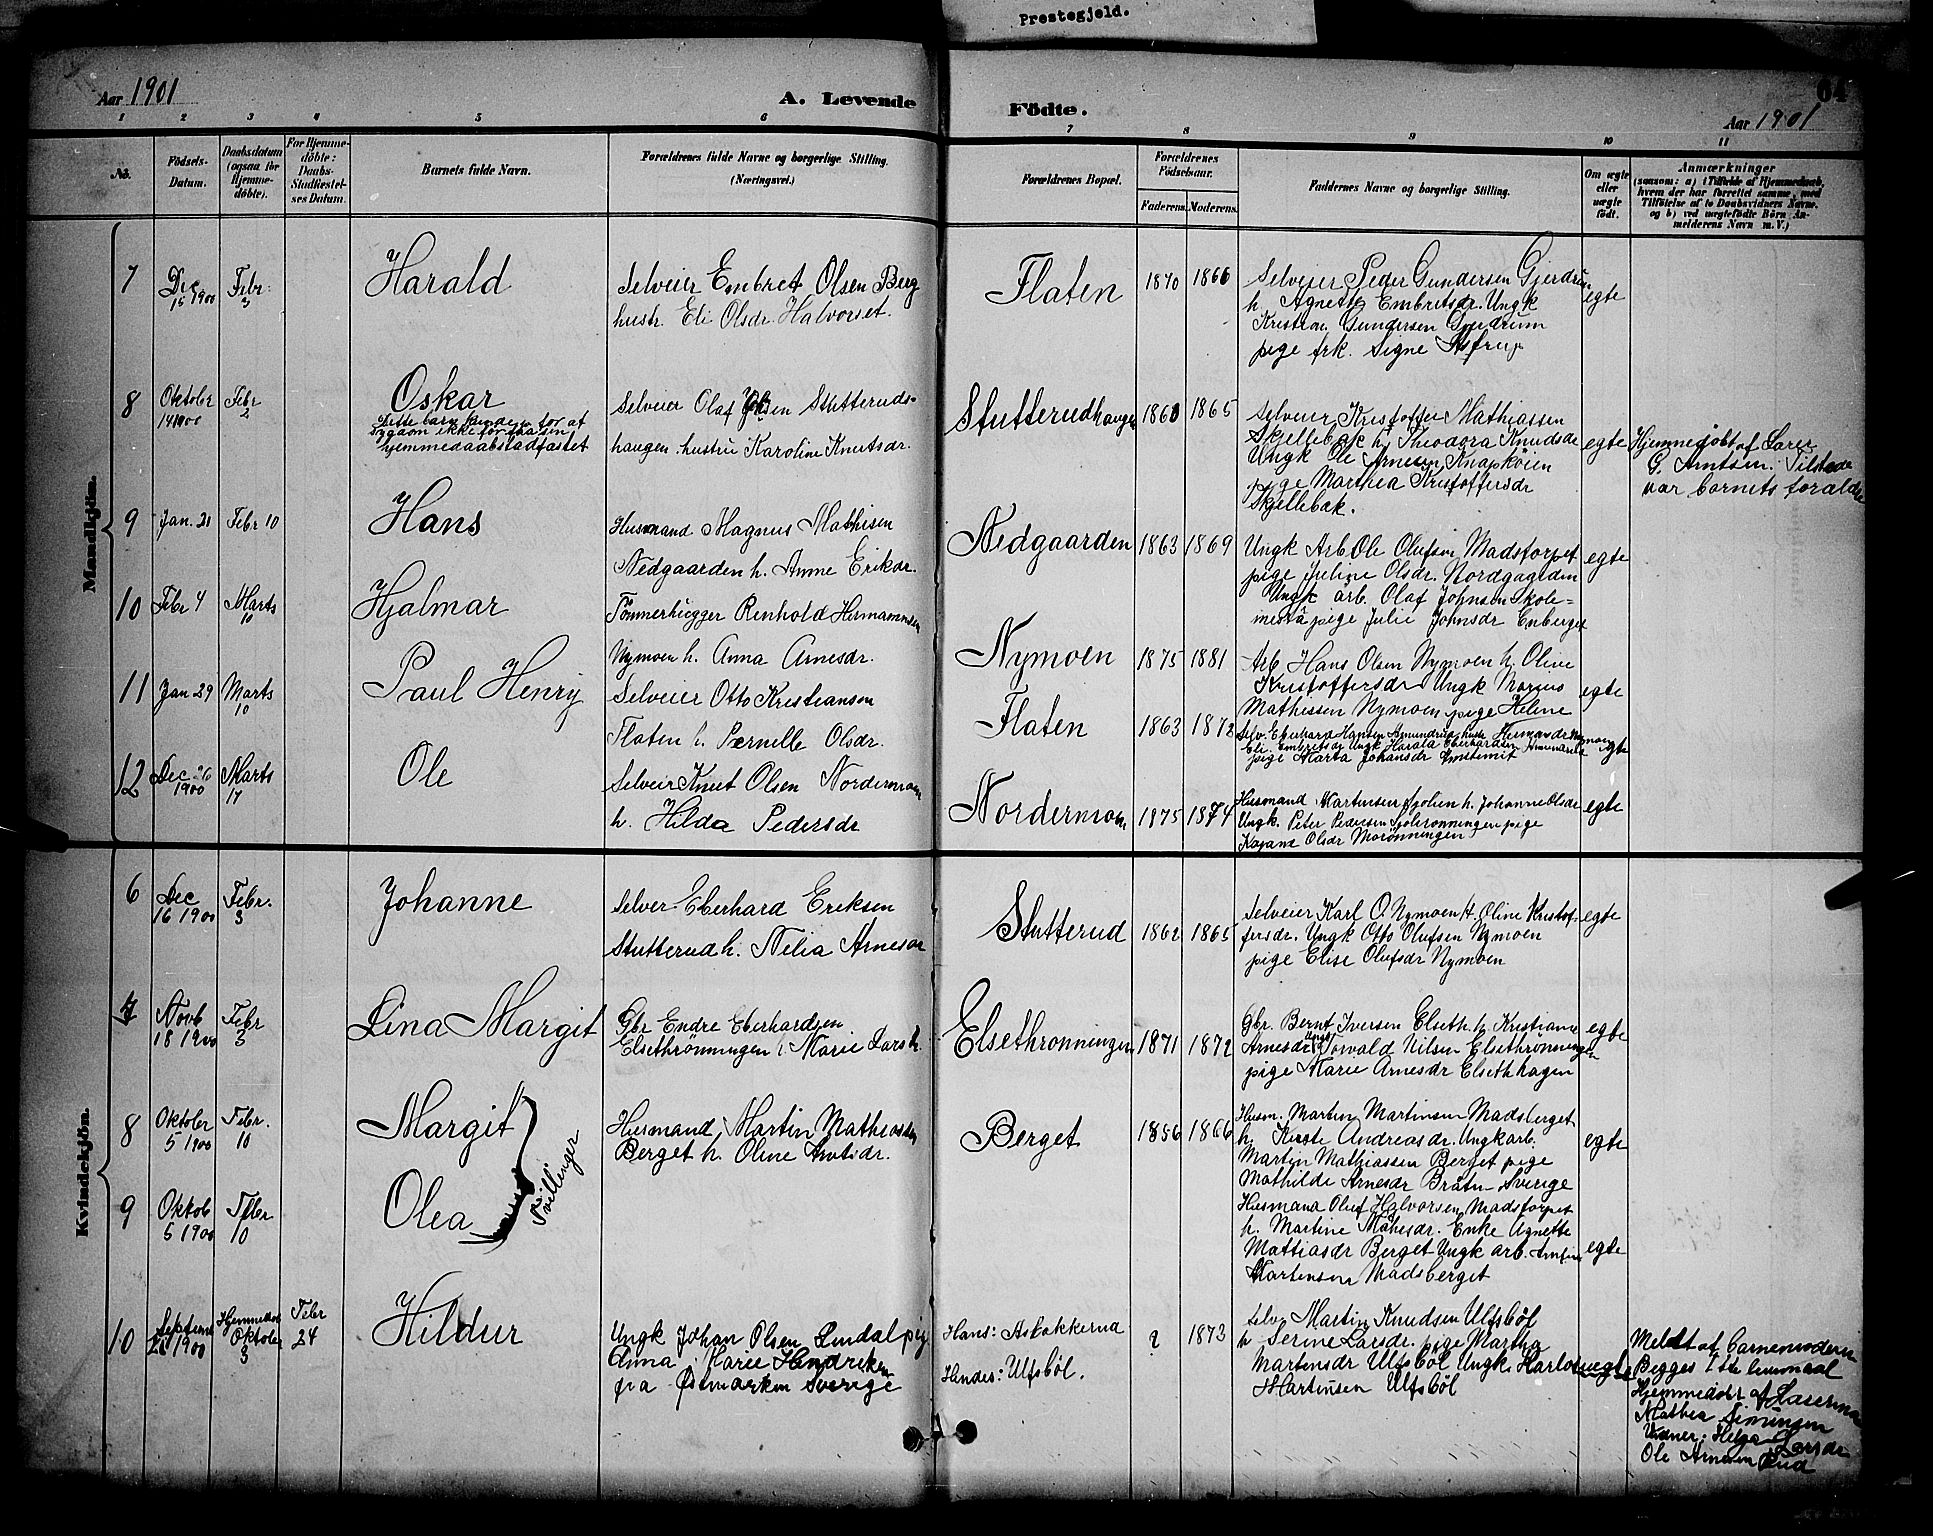 Prestegjeld.
Aar 1901
A. Levende
Födte.
64
Aar 1901
1 2 3 4 5 6 7 8 9 10 11
No.
Födsels-
Datum.
Daabsdatum
(ogsaa for
Hjemme-
döbte).
For Hjemme-
döbte:
Daabs-
Stadfæstel-
ses Datum.
Barnets fulde Navn.
Forældrenes fulde Navne og borgerlige Stilling.
(Næringsvei.)
Forældrenes Bopæl.
Forældrenes
Födselsaar.
Faderens. Moderens.
Faddernes Navne og borgerlige Stilling.
Om ægte
eller
uægte
födt.
Anmærkninger
(saasom: a) i Tilfælde af Hjemmedaab,
hvem der har forrettet samme, med
Tilföielse af to Daabsvidners Navne,
og b) ved uægtefödte Börn An-
melderens Navn m. V.)
Mandkjön.
7
Dec
15 1900
Febr.
3
Harald
Selveier Embret Olsen Berg
hustr. Eli Olsdr. Halvorset.
Flaten
1870 1866
Selveier Peder Gundersen Gjerdrum
h. Agnette Embretsdr. Ungk
Kristian Gundersen Gjerdrum
pige frk. Signe Astrup
egte
8
Oktober
14 1900
Febr
2
Oskar
Dette barn kunde for at
sygdom ikke for faa sin
hjemmedaab stadfæstet
Selveier Olaf Olsen Stutteruds-
haugen hustru Karoline Knutsdr.
Stutterudhaugen
1860 1865
Selveier Kristoffer Mathiassen
Skjellebæk h. Theodora Knudsdr
Ungk Ole Arnesen Knapkøien
pige Marthea Kristoffersdr
Skjellebæk.
egte
Hjemmedøbt af Lærer
G. Arntsen. Tilstede
var barnets foraldre
9
Jan. 21
Febr 10
Hans
Husmand Magnus Mathisen
Nedgaarden h. Anne Eriksdr.
Nedgaarden
1863 1869
Ungk Arb Ole Olufsen Madstorpet
pige Juline Olsdr. Nordgagaden
Ungk arb. Olaf Johnsen Skole-
mesta pige Julie Johnsdr Enberget
egte
10
Febr 4
Marts
10
Hjalmar
Tömmerhugger Reinhold Hermannsen
Nymoen h. Anna Arnesdr.
Nymoen
1875 1881
Arb Hans Olsen Nymoen h. Olive
Kristoffersdr Ungk Marius
Mathissen Nymoen pige Helene
egte
11
Jan 29
Marts
10
Paul Henry
Selveier Otto Kristiansen
Flaten h. Pernille Olsdr.
Flaten
1863 1872
Selv. Eberhard Hansen Åmundrud
Eli Embretsdr Ungk Harald Eberhardsen Åmundrud
pige Marta Johansdr
egte
12
Dec 26
1900
Marts
17
Ole
Selveir Knut Olsen Nordermoen
h. Hilda Pedersdr
Nordermoen
1875 1874
Husmand Martinsen Sjolien h. Johanne Olsdr
Ungk. Peter Pedersen Sjolirønningen pige
Kajane Olsdr Morønningen
egte
Kvindekjön.
6
Dec
16 1900
Febr.
3
Johanne
Selveier Eberhard Eriksen
Stutterud h. Nelia Arnesdr
Stutterud
1862 1865
Selveier Karl O. Nymoen H. Oline Kristof-
fersdr. Ungk Otto Olufsen Nymoen
pige Elise Olufsdr Nymoen
egte
7
Novb
18 1900
Febr
3
Lina Margit
Gbr Endre Eberhardsen
Elsethrønningen h. Marie Larsdr.
Elsethrønningen
1871 1872
Gbr. Bernt Iversen Elseth h. Kristiane
Arnesdr Ungk Torvald Nilsen Elsethrønningen
pige Marie Arnesdr Elsethhagen
egte
8
Oktober
5 1900
Febr.
10
Margit
Tvillinger
Husmand Martin Mathiasen
Berget h. Oline Arntsdr.
Berget
1856 1866
Husm. Martin Martinsen Madsberget
h. Kirste Andreasdr. Ungkarb.
Martin Mathiassen Berget pige
Mathilde Arnesdr Bråtn Sverige
egte
9
Oktob
5 1900
Febr
10
Olea
Husmand Oluf Halvorsen Madstorpet
h. Martine Mathisdr. Enke Agnette
Mattiasdr Berget Ungk arb. Anton
Martinsen Madsberget
egte
10
Septemb
25 1900
Hjemmedøbt
Oktober
3
Febr
24
Hildur
Ungk Johan Olsen Lindal pige
Anna Marie Hendriksen
fra Østmarken Sverige
Hans: Askakkerud
Hendes: Ulfsböl.
? 1873
Selv. Martin Knudsen Ulfsböl
h Serine Larsdr. pige Martha
Martinsdr Ulfsböl Ungk. Karlot
Martinsen Ulfsböl
uegte
Meldt af barnemoderen
Begges 1ste leiermaal
Hjemmedøbt af
Mathea Simensen
Vidner: Helga Larsdr
Ole Arnesen Rud